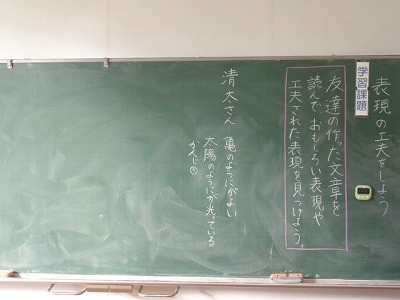 表現の工夫をしよう
学習課題
友達の作った文章を
読んで、おもしろい表現や
工夫された表現を見つけよう。
清太さん
亀のようにがよい
太陽のようにが光っている
かんじ